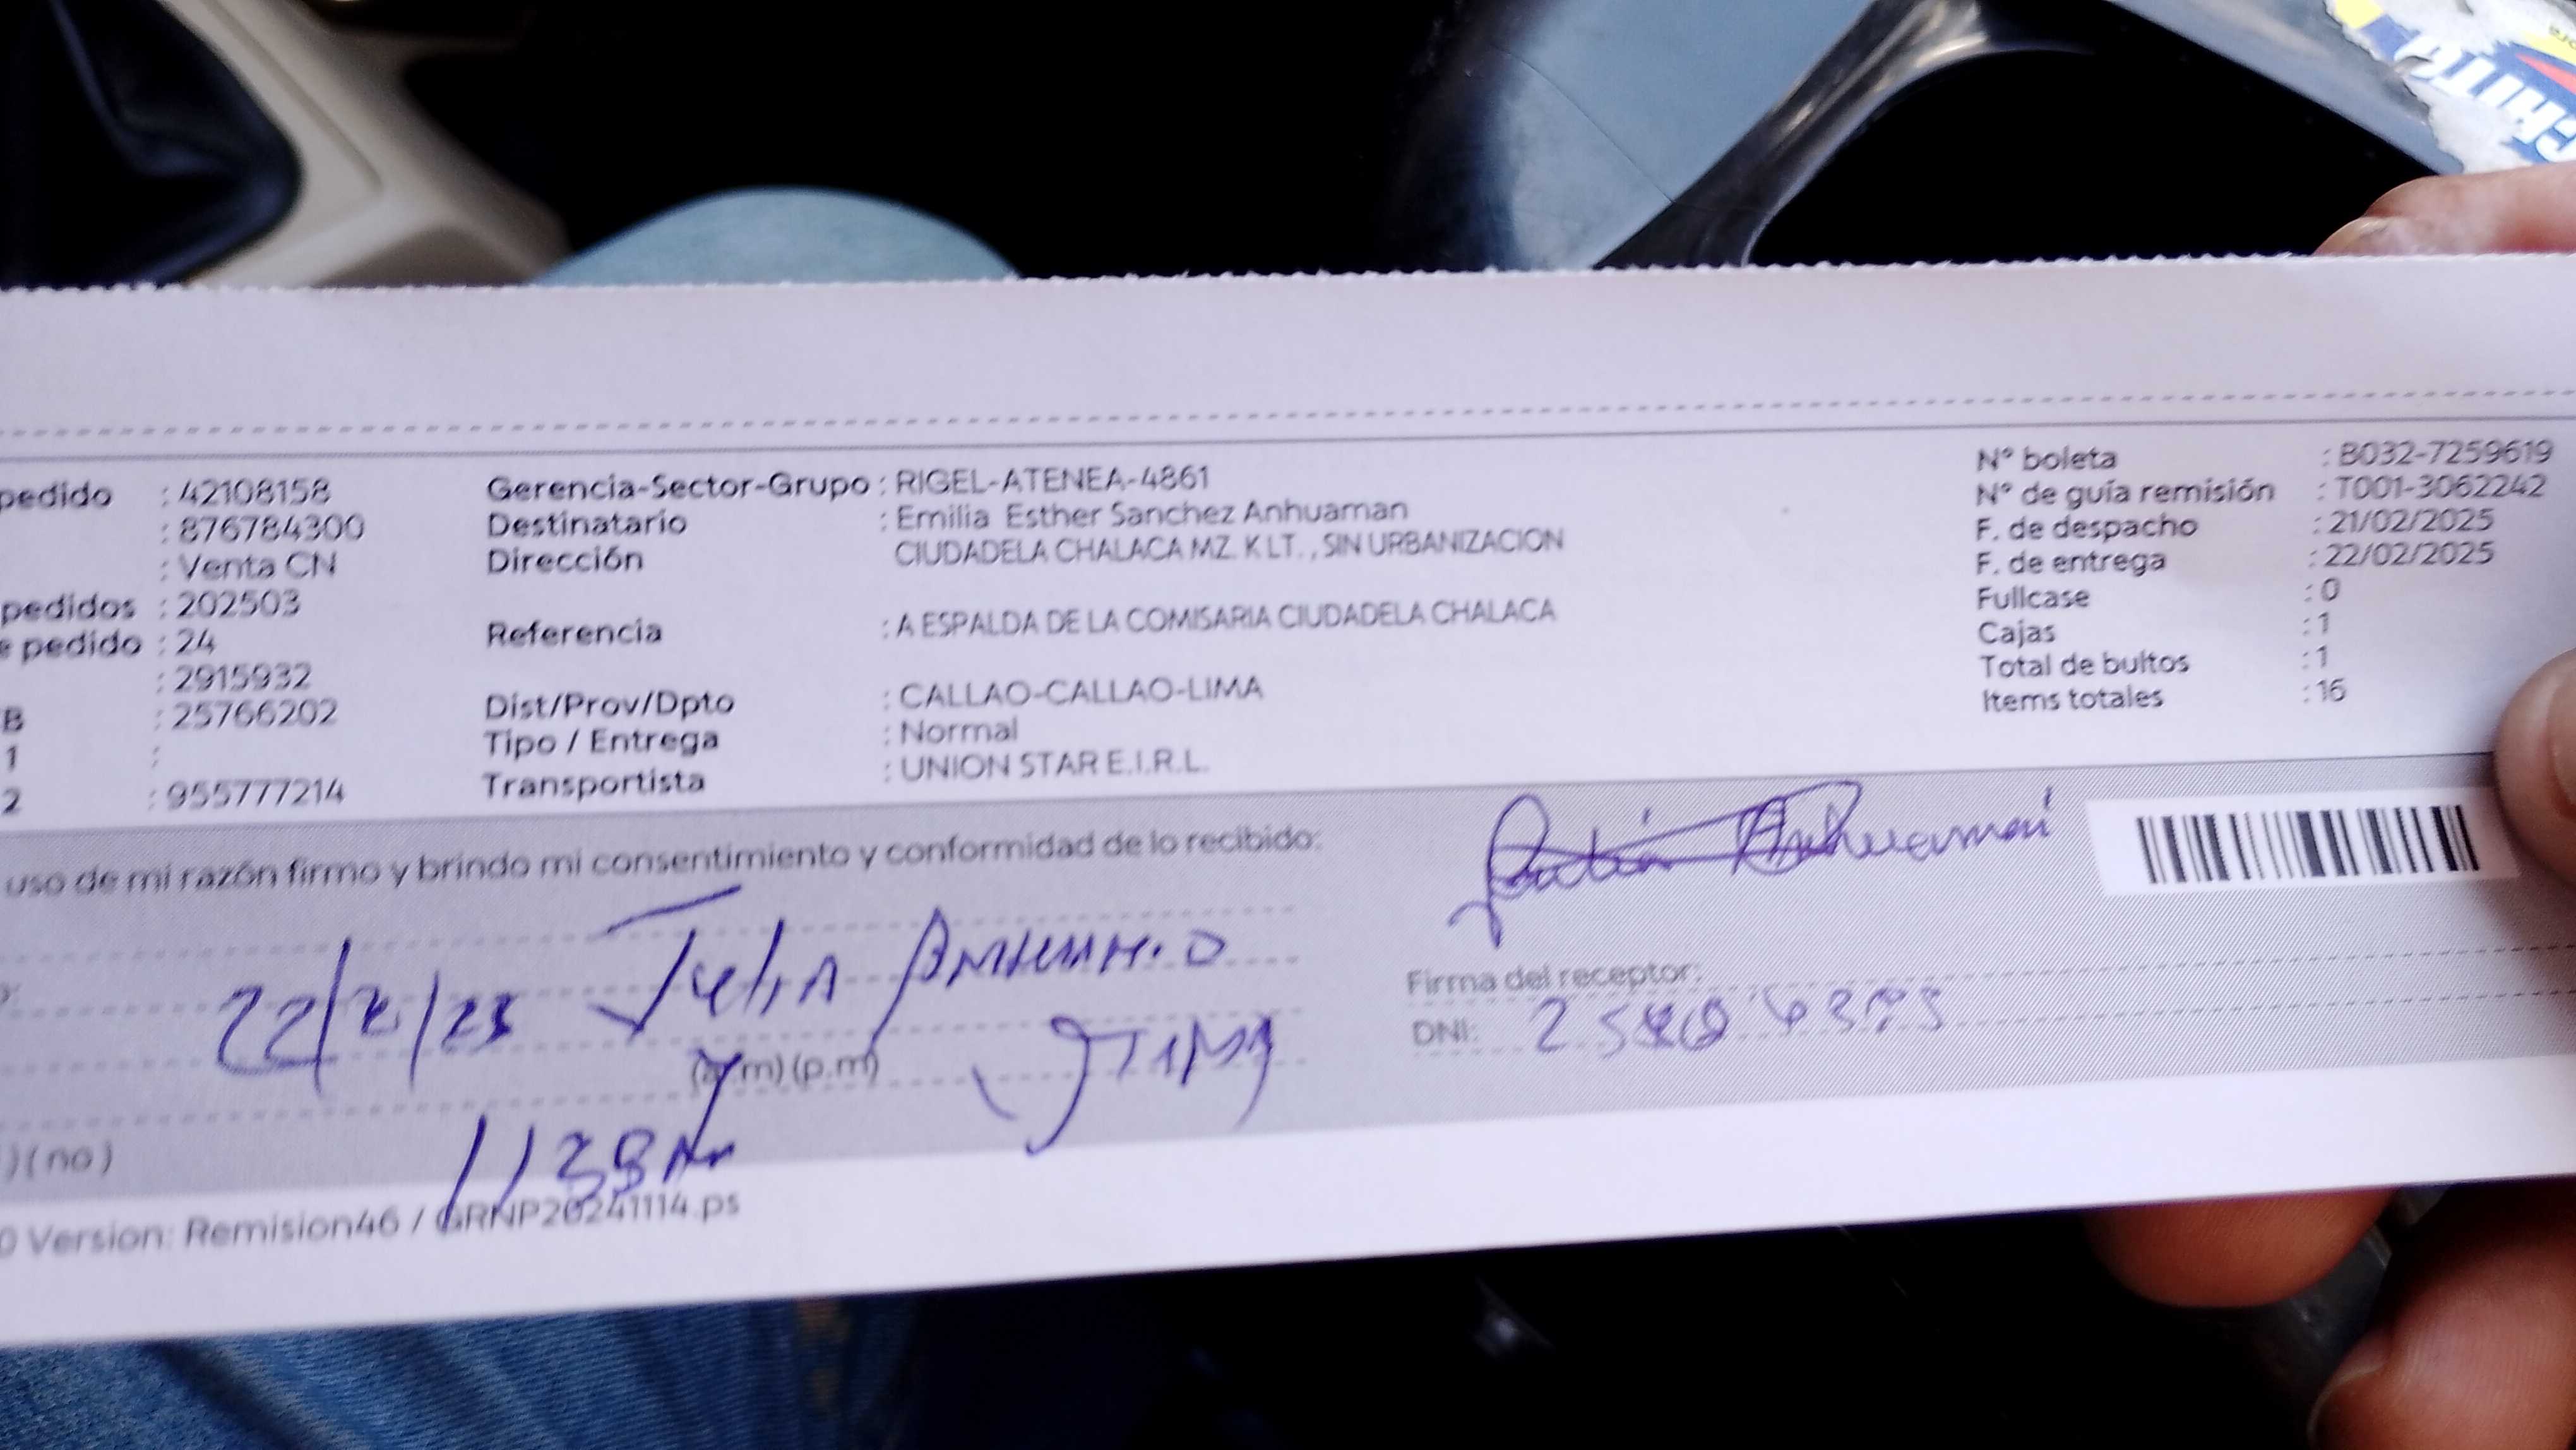 CHITO
pedido : 42108158 Gerencia-Sector-Grupo : RIGEL-ATENEA-4861 N° boleta : B032-7259619
: 876784300 Destinatario : Emilia Esther Sanchez Anhuaman N° de guía remisión : T001-3062242
: Venta CN Dirección CIUDADELA CHALACA MZ. K LT. , SIN URBANIZACION F. de despacho : 21/02/2025
F. de entrega : 22/02/2025
pedidos : 202503 Fullcase : 0
e pedido : 24 Referencia : A ESPALDA DE LA COMISARIA CIUDADELA CHALACA Cajas : 1
: 2915932 Total de bultos : 1
B : 25766202 Dist/Prov/Dpto : CALLAO-CALLAO-LIMA Items totales : 16
1 : Tipo / Entrega : Normal
2 : 955777214 Transportista : UNION STAR E.I.R.L.
uso de mi razón firmo y brindo mi consentimiento y conformidad de lo recibido:
Anhuaman
22/2/25 Julia
Firma del receptor:
DNI:
(a.m) (p.m)
1138 Am
) ( no )
0 Version: Remision46 / GRNP20241114.ps